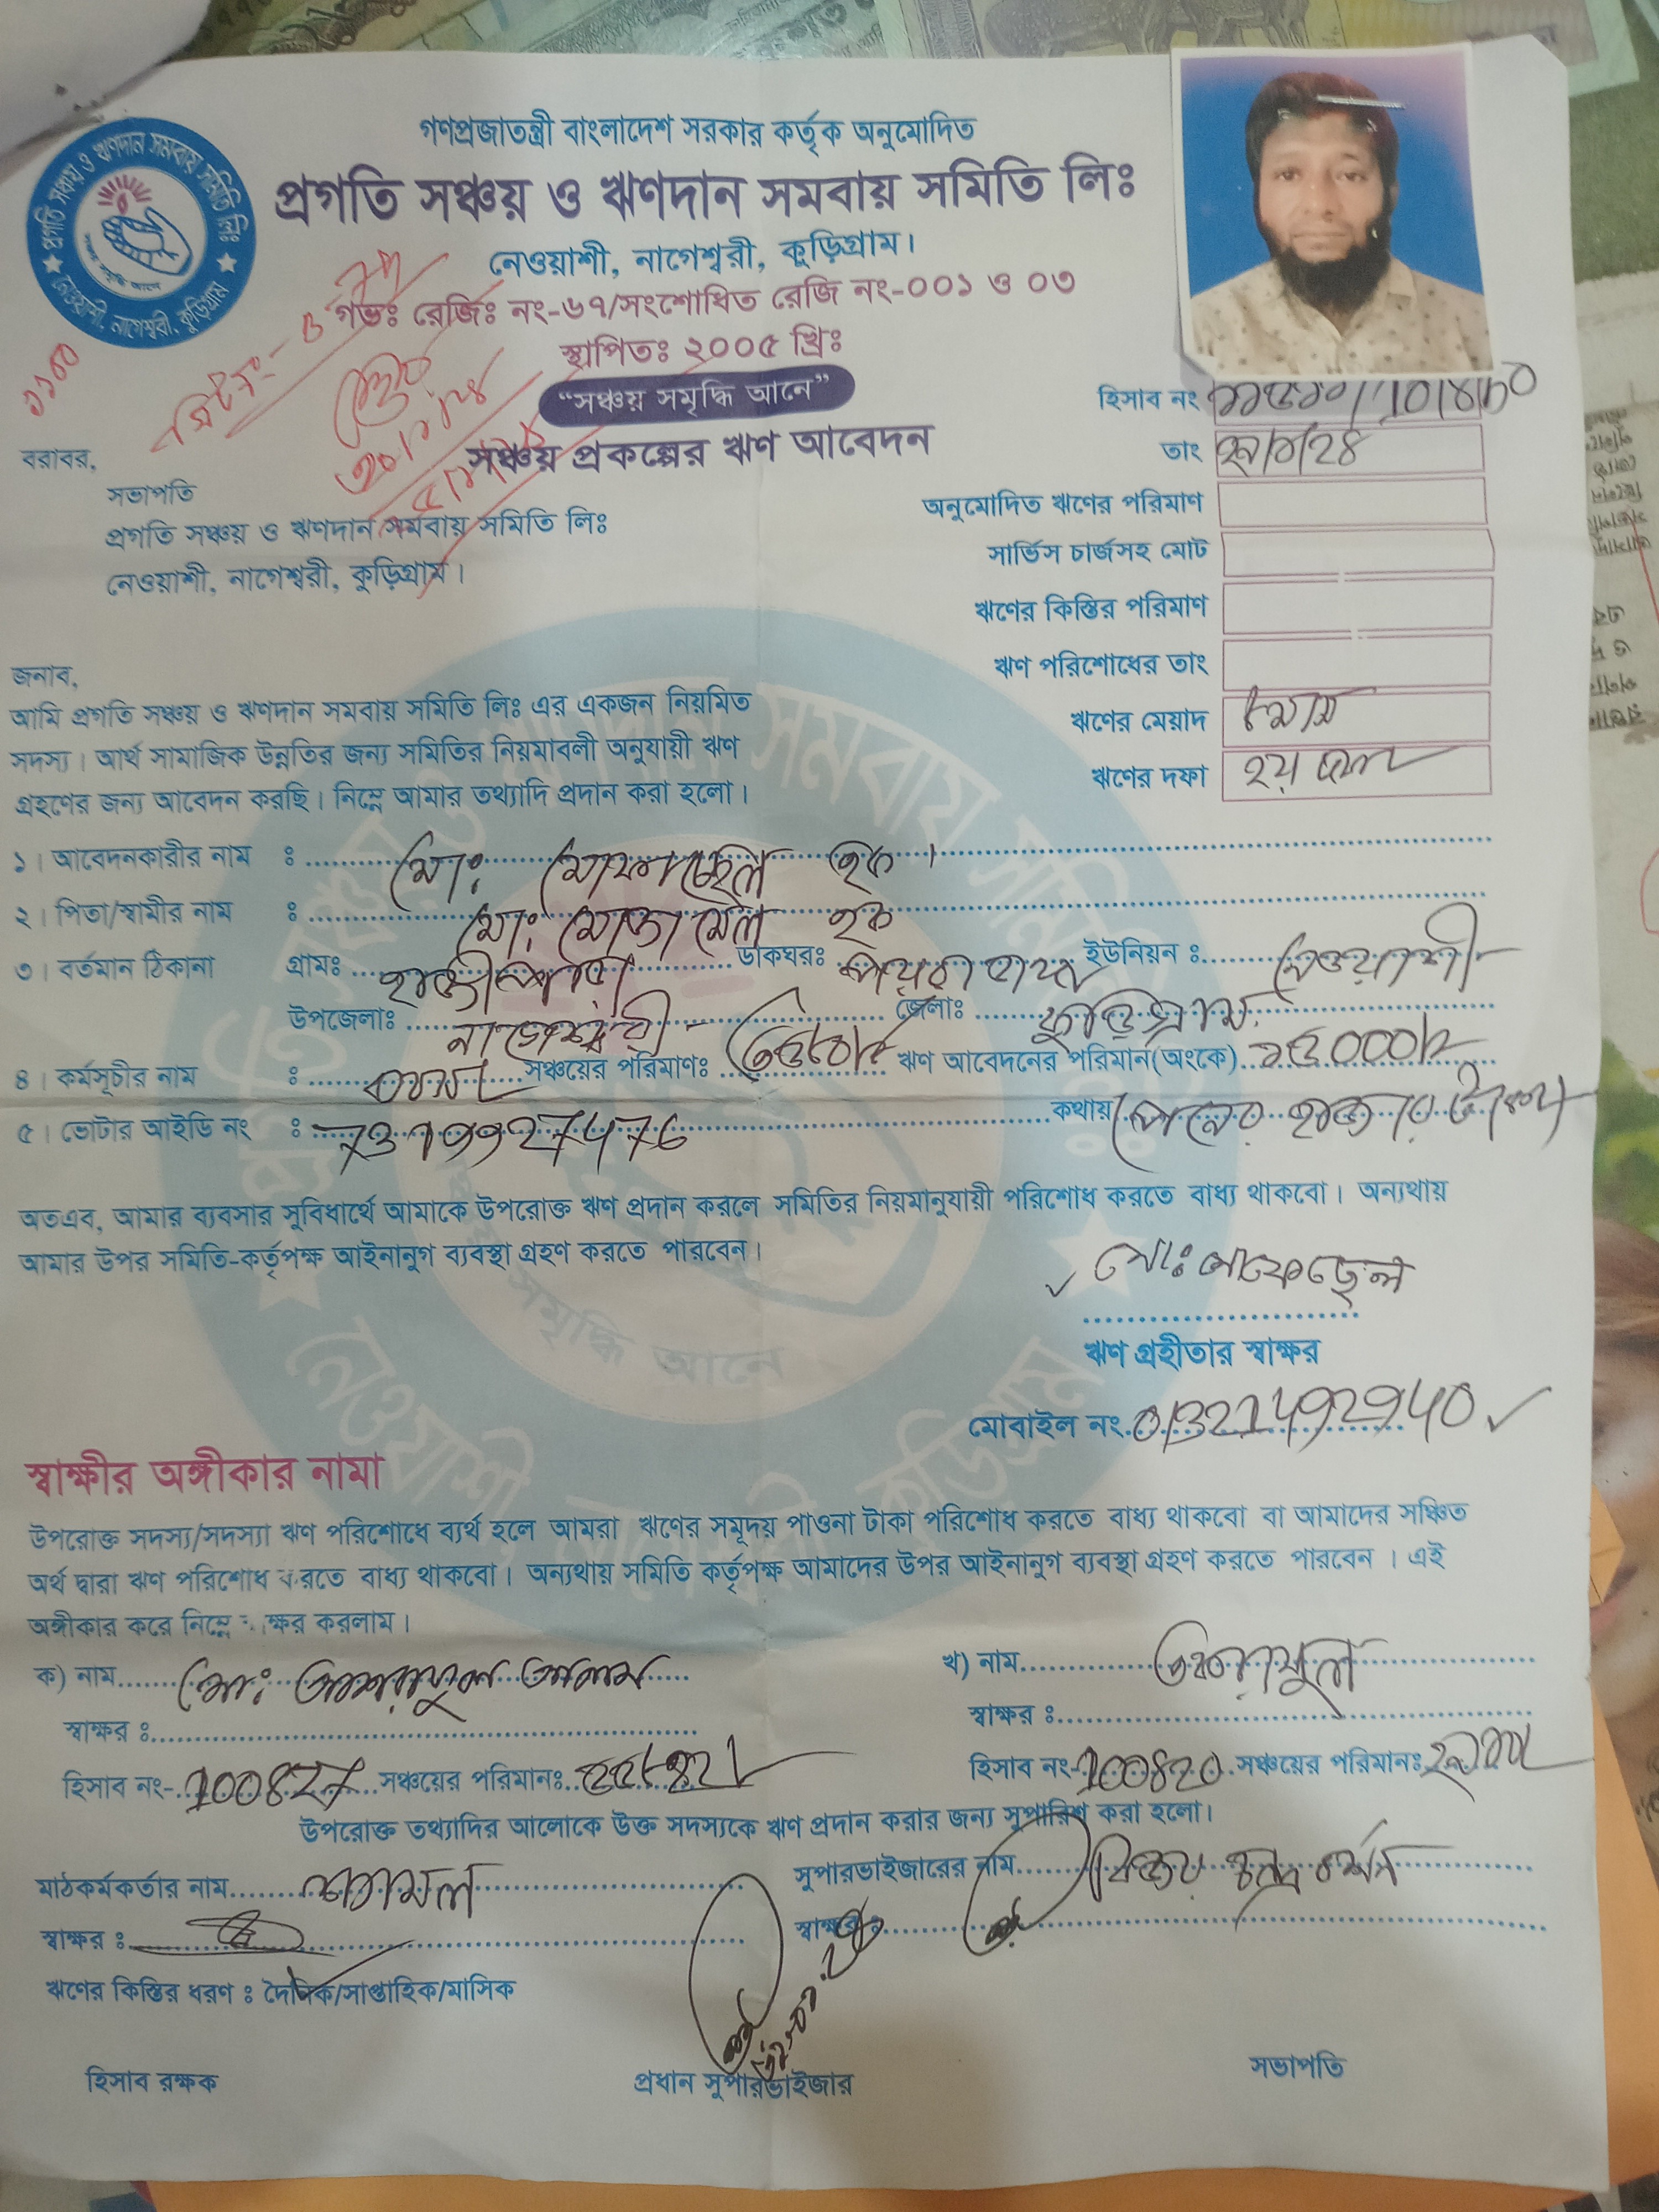 গণপ্রজাতন্ত্রী বাংলাদেশ সরকার কর্তৃক অনুমোদিত
প্রগতি সঞ্চয় ও ঋণদান সমবায় সমিতি লিঃ
নেওয়াশী, নাগেশ্বরী, কুড়িগ্রাম।
গভঃ রেজিঃ নং-৬৭/সংশোধিত রেজি নং-০০১ ও ০৩
স্থাপিতঃ ২০০৫ খ্রিঃ
“সঞ্চয় সমৃদ্ধি আনে”
সঞ্চয় প্রকল্পের ঋণ আবেদন
হিসাব নং
তাং
অনুমোদিত ঋণের পরিমাণ
সার্ভিস চার্জসহ মোট
ঋণের কিস্তির পরিমাণ
ঋণ পরিশোধের তাং
ঋণের মেয়াদ
ঋণের দফা ২য় দফা
বরাবর,
সভাপতি
প্রগতি সঞ্চয় ও ঋণদান সমবায় সমিতি লিঃ
নেওয়াশী, নাগেশ্বরী, কুড়িগ্রাম।
জনাব,
আমি প্রগতি সঞ্চয় ও ঋণদান সমবায় সমিতি লিঃ এর একজন নিয়মিত
সদস্য। আর্থ সামাজিক উন্নতির জন্য সমিতির নিয়মাবলী অনুযায়ী ঋণ
গ্রহণের জন্য আবেদন করছি। নিম্নে আমার তথ্যাদি প্রদান করা হলো।
১। আবেদনকারীর নাম ঃ মোঃ হক
২। পিতা/স্বামীর নাম ঃ মোঃ মোজামেল হক
৩। বর্তমান ঠিকানা গ্রামঃ ডাকঘরঃ ইউনিয়ন ঃ নেওয়াশী
উপজেলাঃ নাগেশ্বরী জেলাঃ কুড়িগ্রাম
৪। কর্মসূচীর নাম ঃ সঞ্চয়ের পরিমাণঃ ঋণ আবেদনের পরিমান(অংকে) ১৫০০০/=
৫। ভোটার আইডি নং ঃ 7319927476 কথায় (পনের হাজার টাকা)
অতএব, আমার ব্যবসার সুবিধার্থে আমাকে উপরোক্ত ঋণ প্রদান করলে সমিতির নিয়মানুযায়ী পরিশোধ করতে বাধ্য থাকবো। অন্যথায়
আমার উপর সমিতি-কর্তৃপক্ষ আইনানুগ ব্যবস্থা গ্রহণ করতে পারবেন।
মোঃ
ঋণ গ্রহীতার স্বাক্ষর
মোবাইল নং
স্বাক্ষীর অঙ্গীকার নামা
উপরোক্ত সদস্য/সদস্যা ঋণ পরিশোধে ব্যর্থ হলে আমরা ঋণের সমূদয় পাওনা টাকা পরিশোধ করতে বাধ্য থাকবো বা আমাদের সঞ্চিত
অর্থ দ্বারা ঋণ পরিশোধ করতে বাধ্য থাকবো। অন্যথায় সমিতি কর্তৃপক্ষ আমাদের উপর আইনানুগ ব্যবস্থা গ্রহণ করতে পারবেন । এই
অঙ্গীকার করে নিম্নে ক্ষর করলাম।
ক) নাম মোঃ আশরাফুল আলম খ) নাম
স্বাক্ষর ঃ স্বাক্ষর ঃ
হিসাব নং- 100827 সঞ্চয়ের পরিমানঃ হিসাব নং- 100820 সঞ্চয়ের পরিমানঃ
উপরোক্ত তথ্যাদির আলোকে উক্ত সদস্যকে ঋণ প্রদান করার জন্য সুপারিশ করা হলো।
মাঠকর্মকর্তার নাম সুপারভাইজারের নাম বিজয় চন্দ্র বর্মন
স্বাক্ষর ঃ স্বাক্ষর ঃ
ঋণের কিস্তির ধরণ ঃ দৈনিক/সাপ্তাহিক/মাসিক
হিসাব রক্ষক প্রধান সুপারভাইজার সভাপতি